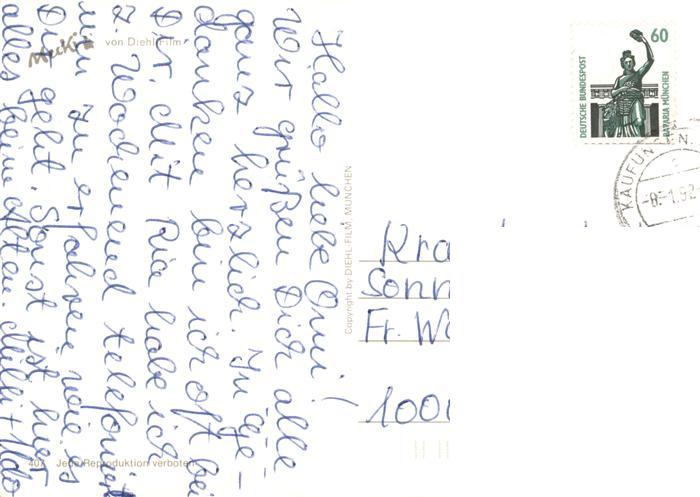 Hallo liebe Omi!
Wir grüßen Dich alle
ganz herzlich. In Ge-
danken bin ich oft bei
Dir. Mit Ria habe ich
z. Wochenend telefoniert
um zu erfahren, wie es
Dir geht. Sonst ist hier
alles beim Alten.
Mecki
von Diehl-Film
407 Jede Reproduktion verboten
Copyright by DIEHL-FILM, MÜNCHEN
60
DEUTSCHE BUNDESPOST
BAVARIA MÜNCHEN
KAUFUN
-8.-1.92
Kra
Sonn
Fr. We
1000